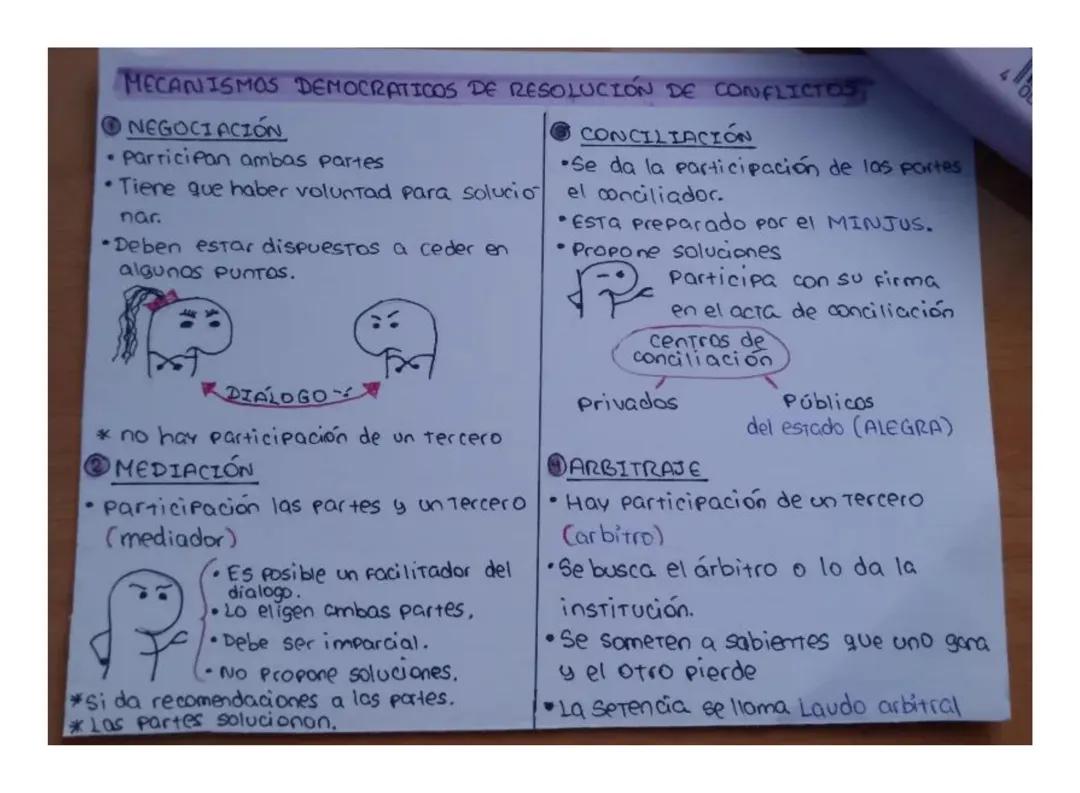 MECANISMOS DEMOCRATICOS DE RESOLUCIÓN DE CONFLICTOS
① NEGOCIACIÓN
• Participan ambas partes
• Tiene que haber voluntad para solucio-
nar.
• Deben estar dispuestos a ceder en
algunos puntos.
DIÁLOGO
* no hay participación de un tercero
② MEDIACIÓN
• Participación las partes y un tercero
(mediador)
• Es posible un facilitador del
dialogo.
• Lo eligen ambas partes.
• Debe ser imparcial.
• No propone soluciones.
* si da recomendaciones a las partes.
* Las partes solucionan.
③ CONCILIACIÓN
• Se da la participación de las partes
el conciliador.
• Esta preparado por el MINJUS.
• Propone soluciones
Participa con su firma
en el acta de conciliación
centros de
conciliación
Privados
Públicos
del estado (ALEGRA)
④ ARBITRAJE
• Hay participación de un tercero
(arbitro)
• Se busca el árbitro o lo da la
institución.
• Se someten a sabientes que uno gana
y el otro pierde
• La setencia se llama Laudo arbitral